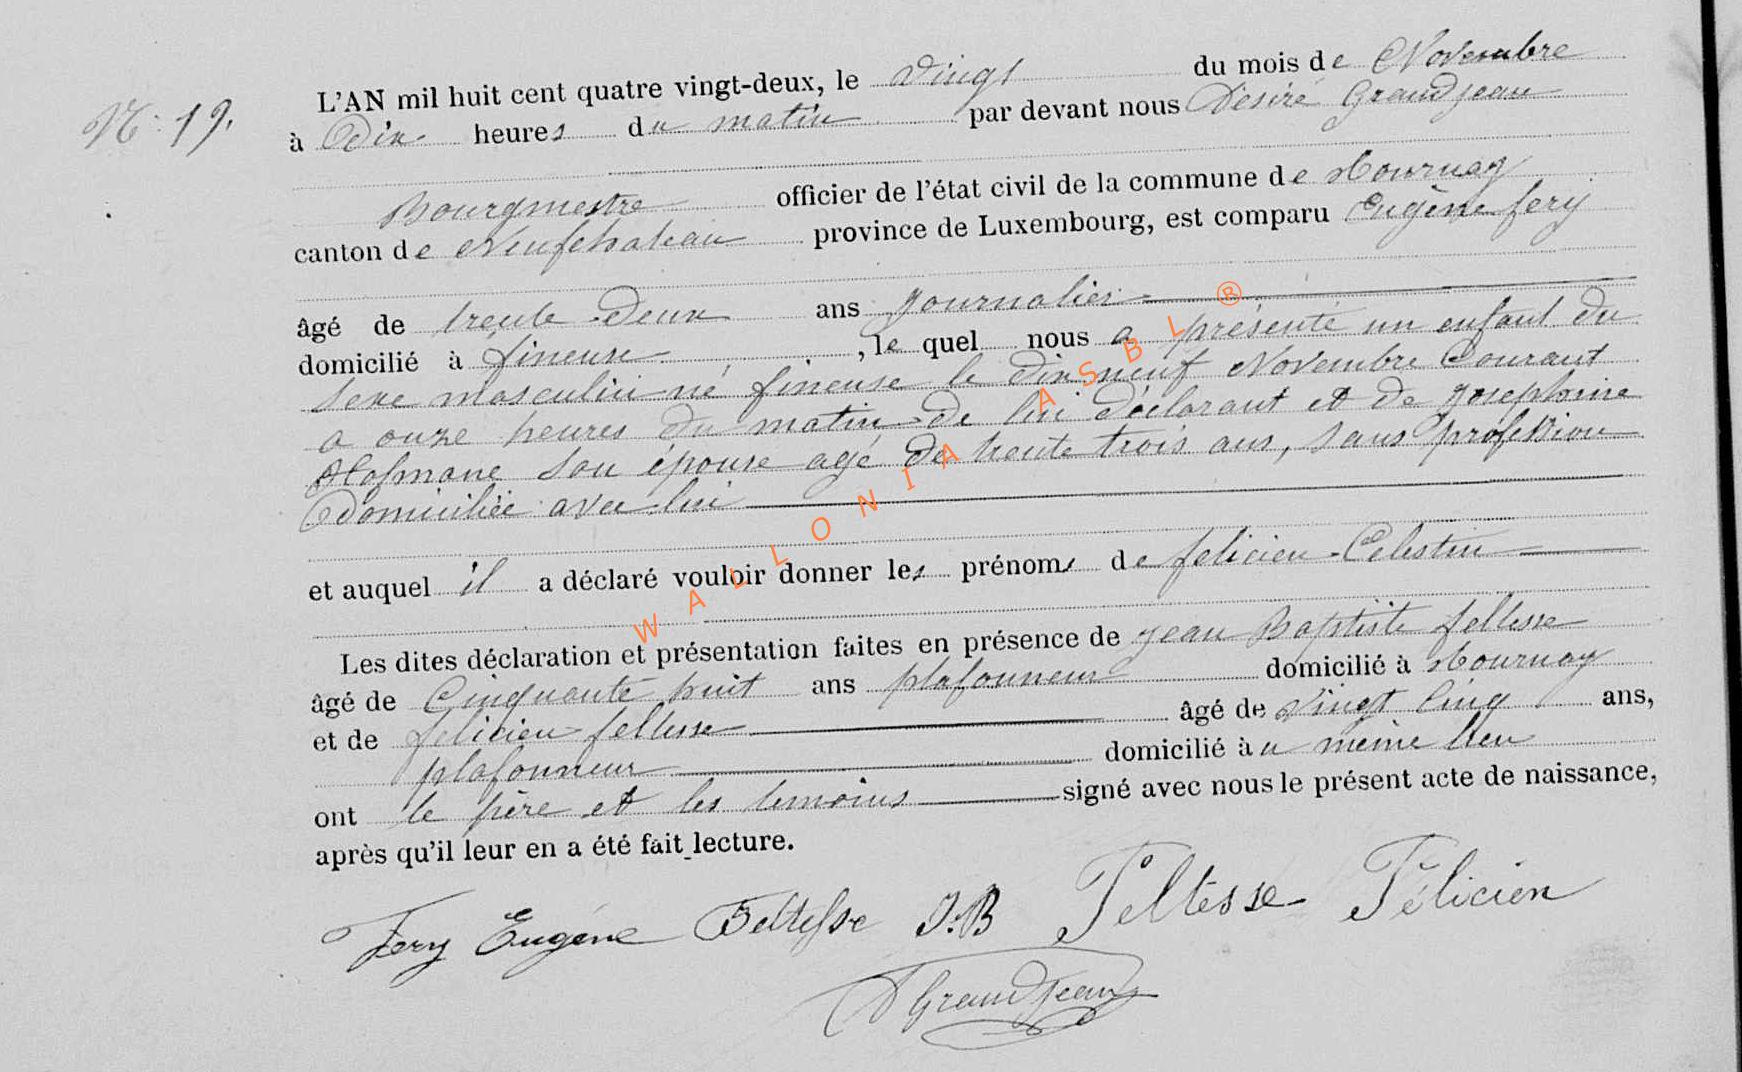 N: 19.
L'AN mil huit cent quatre vingt-deux, le vingt du mois de Novembre
à Dix heures du matin par devant nous Désiré Grandjean
Bourgmestre officier de l'état civil de la commune de Tournay
canton de Neufchateau province de Luxembourg, est comparu Eugène fery
âgé de trente-Deux ans journalier
domicilié à fineuse, le quel nous a présenté un enfant du
sexe masculin né fineuse le dix neuf Novembre Courant
a onze heures du matin de lui déclarant et de Josephine
son épouse agé de trente trois ans, sans profession
Domiciliée avec lui
et auquel il a déclaré vouloir donner les prénoms de felicien-Celestin
Les dites déclaration et présentation faites en présence de jean Baptiste feltesse
âgé de Cinquante huit ans plafonneur domicilié à Tournay
et de felicien feltesse âgé de vingt Cinq ans,
plafonneur domicilié à u même lieu
ont le père et les temoins signé avec nous le présent acte de naissance,
après qu'il leur en a été fait lecture.
Fery Eugène Feltesse J.B Feltesse Félicien
D Grandjean
WALLONIA ASBL ®